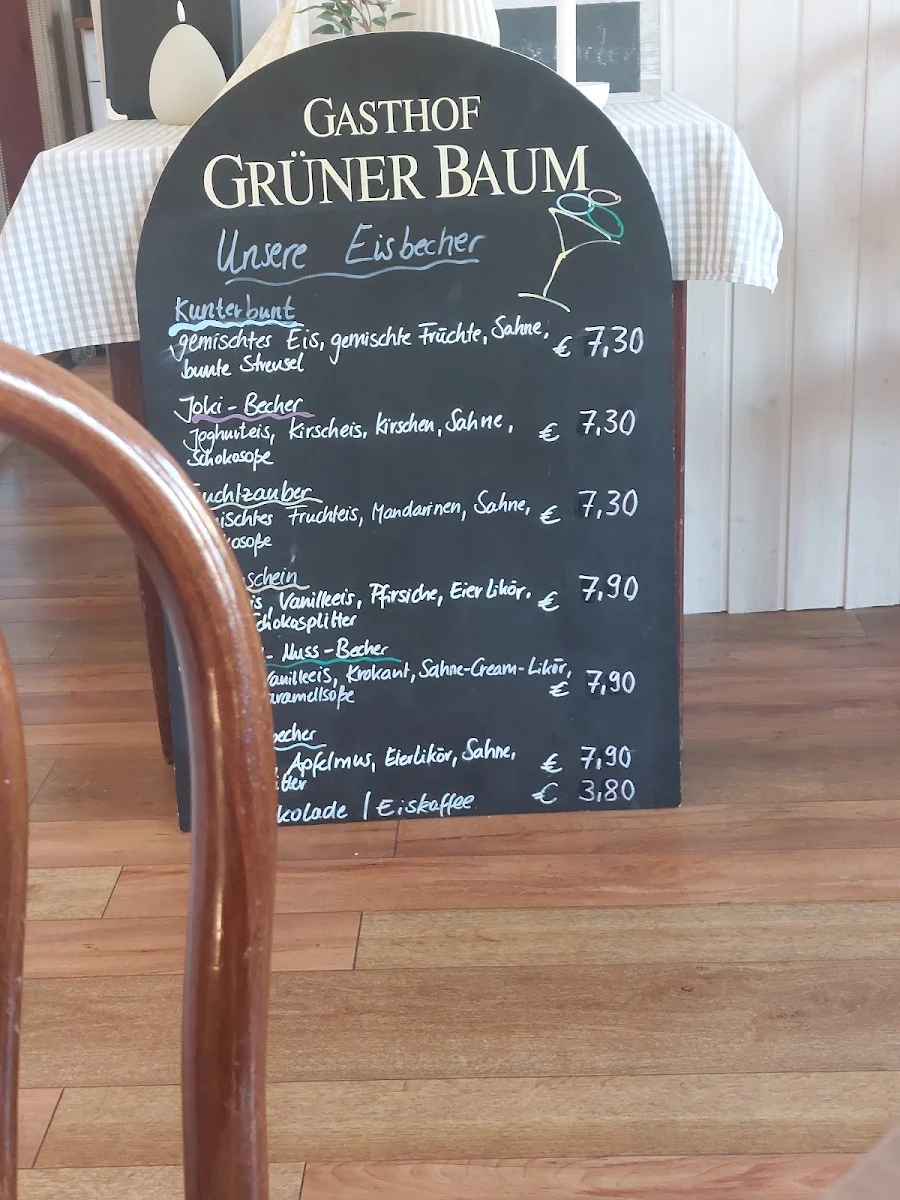 GASTHOF
GRÜNER BAUM
Unsere Eisbecher
Kunterbunt
gemischtes Eis, gemischte Früchte, Sahne, € 7,30
bunte Streusel
Joki-Becher
Joghurteis, Kirscheis, Kirschen, Sahne, € 7,30
Schokosoße
uchtzauber
ischtes Fruchteis, Mandarinen, Sahne, € 7,30
kosoße
schein
is, Vanilleeis, Pfirsiche, Eierlikör, € 7,90
Schokosplitter
- Nuss-Becher
Vanilleeis, Krokant, Sahne-Cream-Likör,
aramellsoße € 7,90
becher
, Apfelmus, Eierlikör, Sahne, € 7,90
tter
kolade | Eiskaffee € 3,80